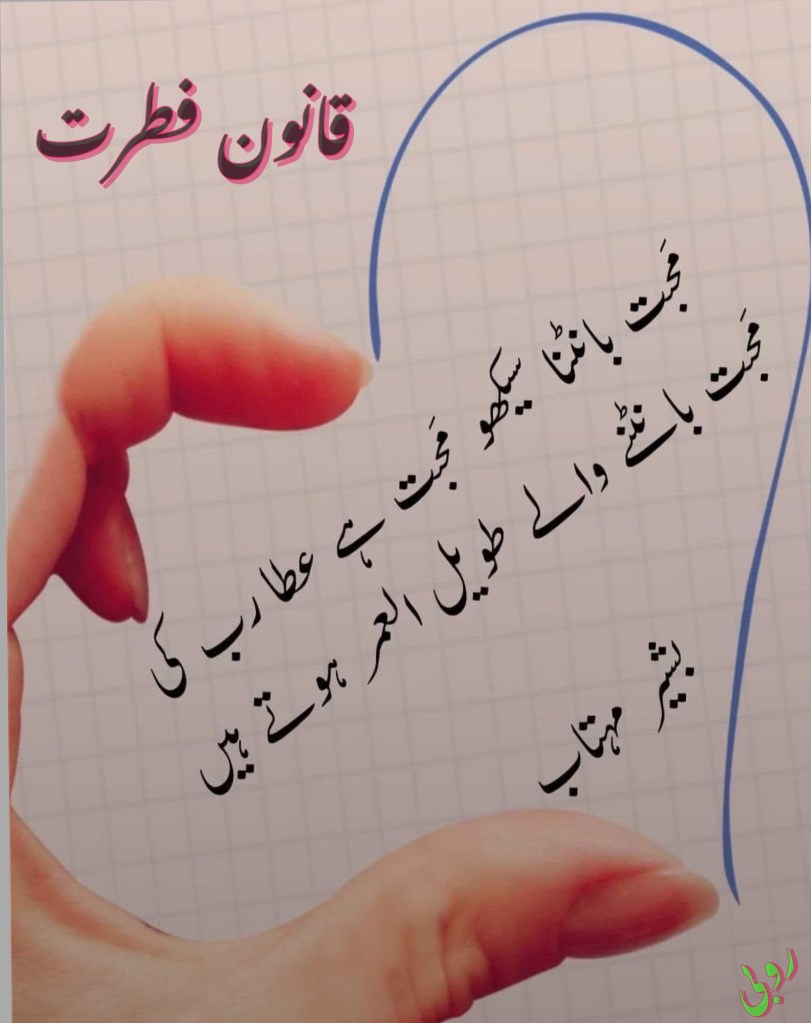 قانون فطرت
محبت بانٹنا سیکھو محبت ہے عطا رب کی
محبت بانٹنے والے طویل العمر ہوتے ہیں
بشیر مہتاب
روبی